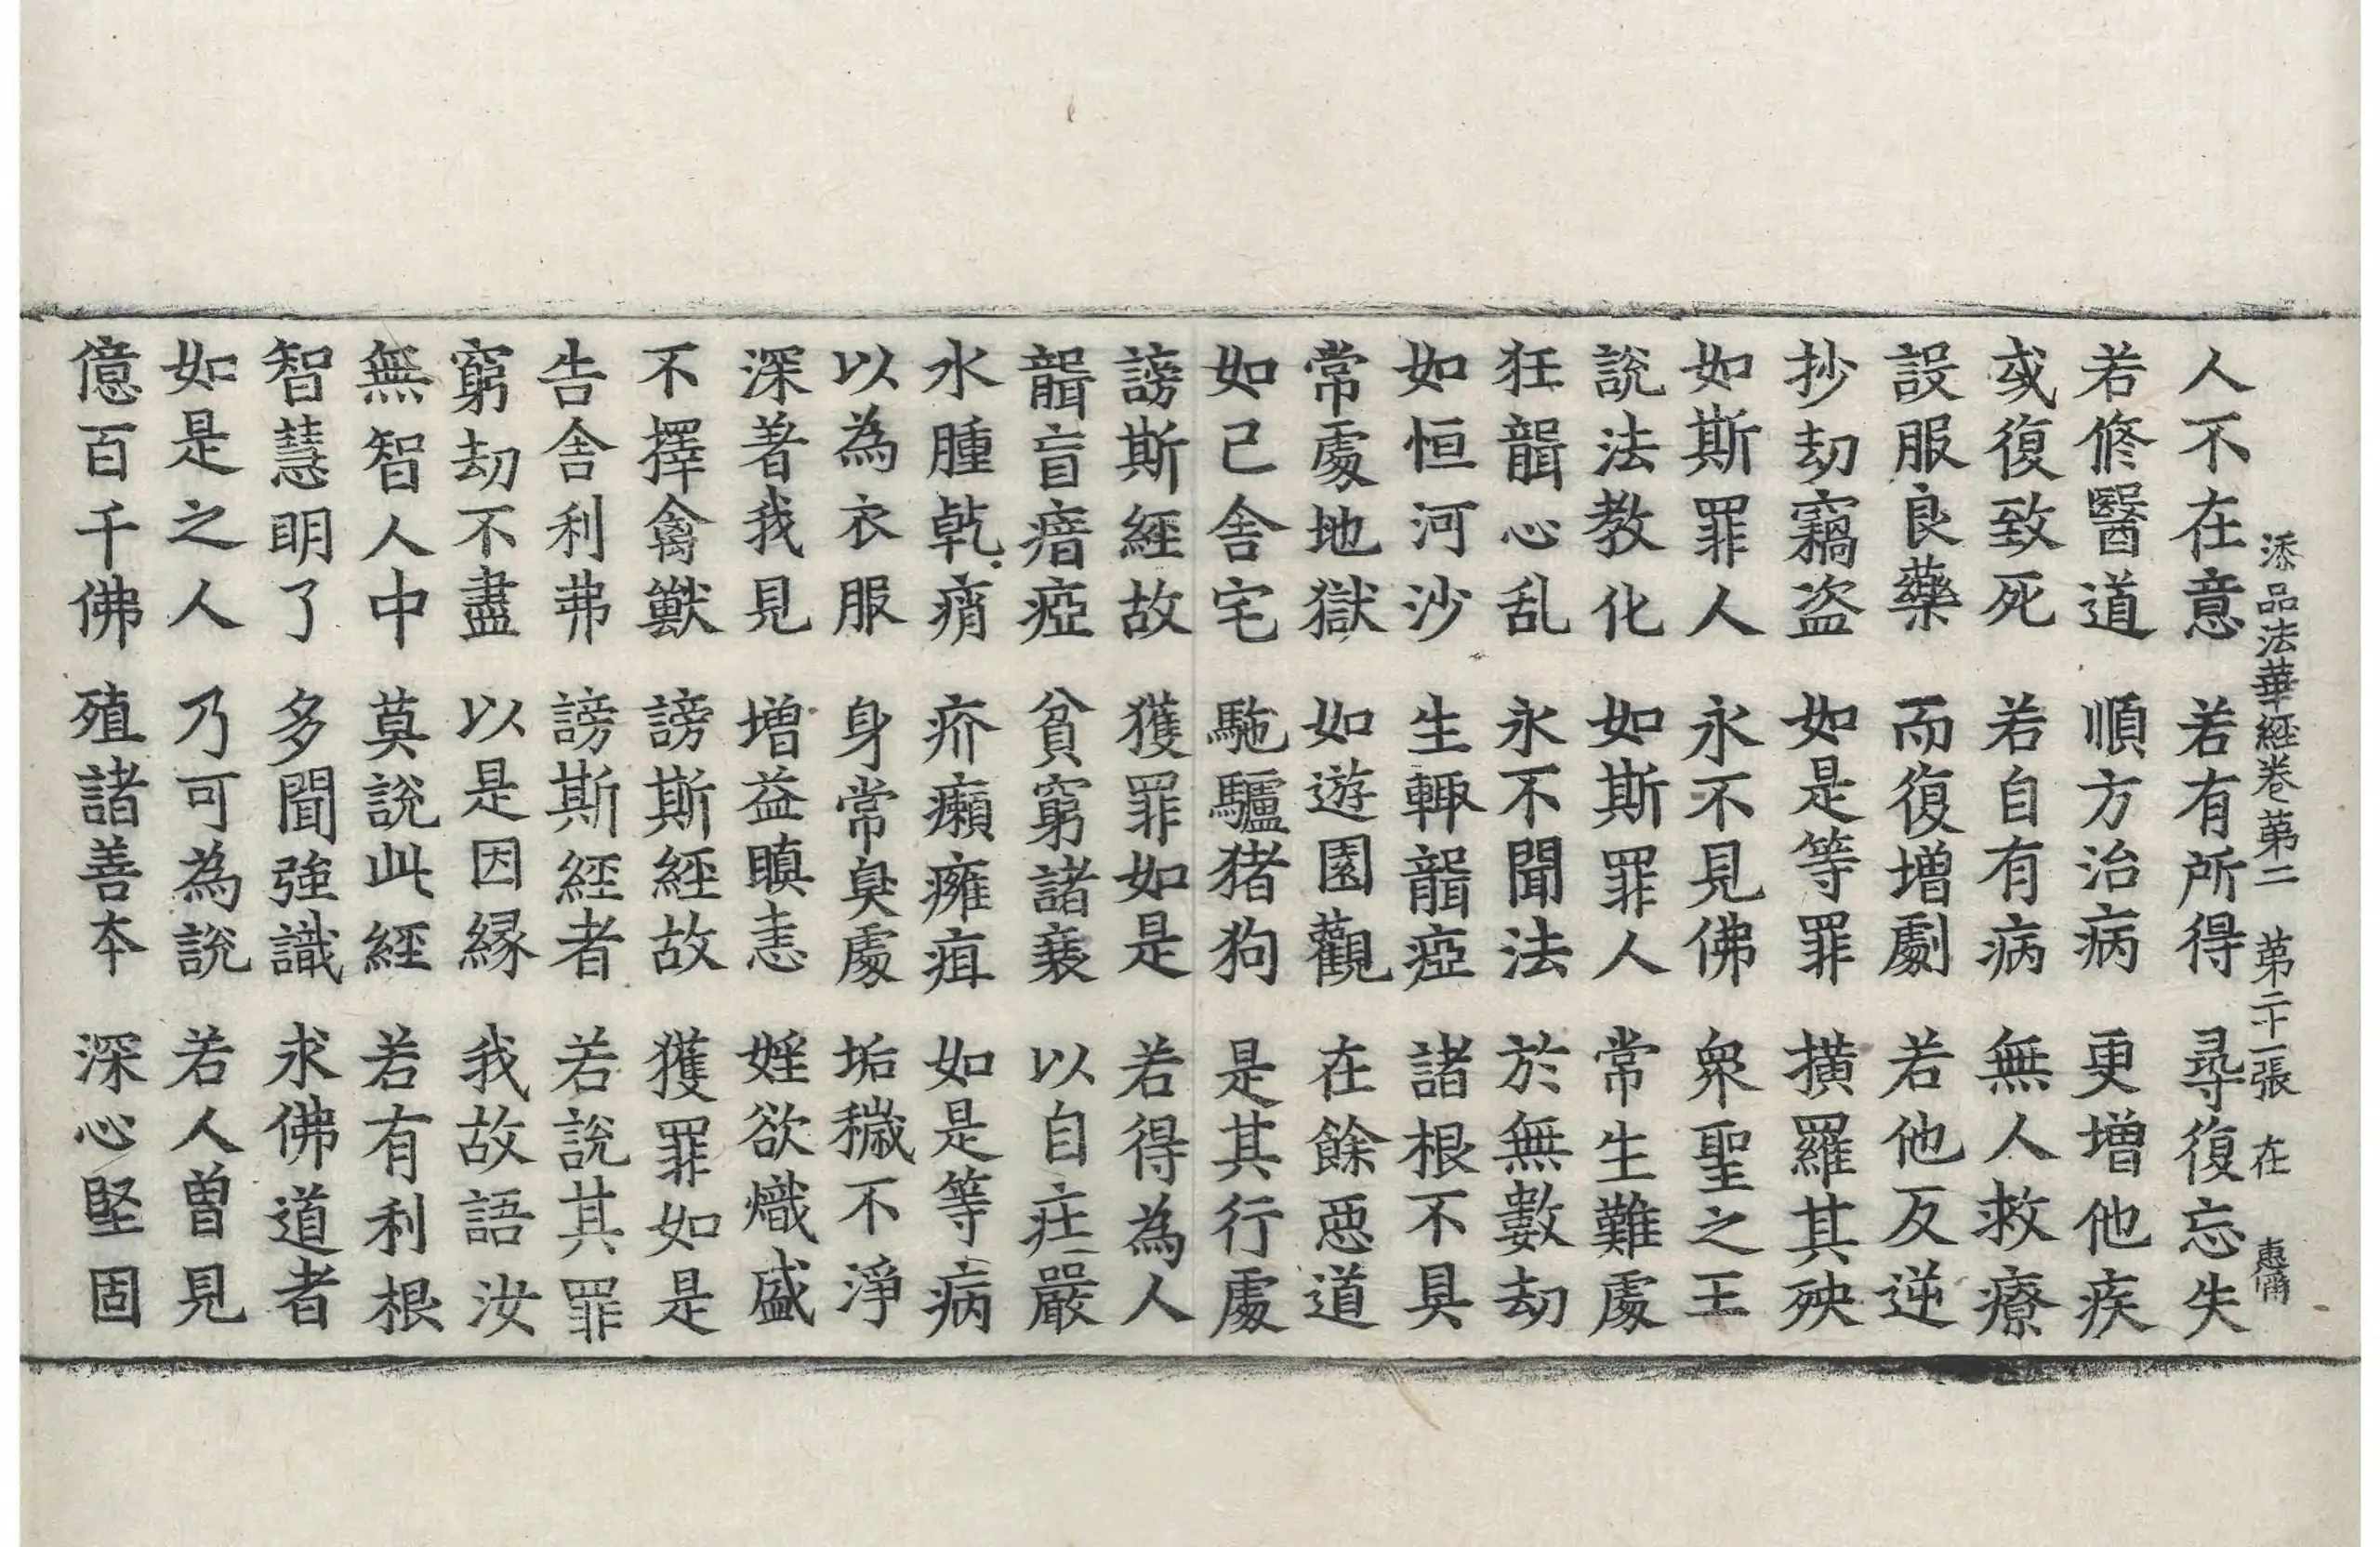 添品法華經卷第二 第二十一張 在
人不在意 若有所得 尋復忘失
若修醫道 順方治病 更增他疾
或復致死 若自有病 無人救療
設服良藥 而復增劇 若他反逆
抄劫竊盜 如是等罪 撗羅其殃
如斯罪人 永不見佛 衆聖之王
說法教化 如斯罪人 常生難處
狂聾心乱 永不聞法 於無數劫
如恒河沙 生輙聾瘂 諸根不具
常處地獄 如遊園觀 在餘惡道
如己舍宅 駞驢猪狗 是其行處
謗斯經故 獲罪如是 若得為人
聾盲瘖瘂 貧窮諸衰 以自莊嚴
水腫乾痟 疥癩癰疽 如是等病
以為衣服 身常臭處 垢穢不淨
深著我見 增益瞋恚 婬欲熾盛
不擇禽獸 謗斯經故 獲罪如是
告舍利弗 謗斯經者 若說其罪
窮劫不盡 以是因縁 我故語汝
無智人中 莫說此經 若有利根
智慧明了 多聞強識 求佛道者
如是之人 乃可為說 若人曽見
億百千佛 殖諸善本 深心堅固